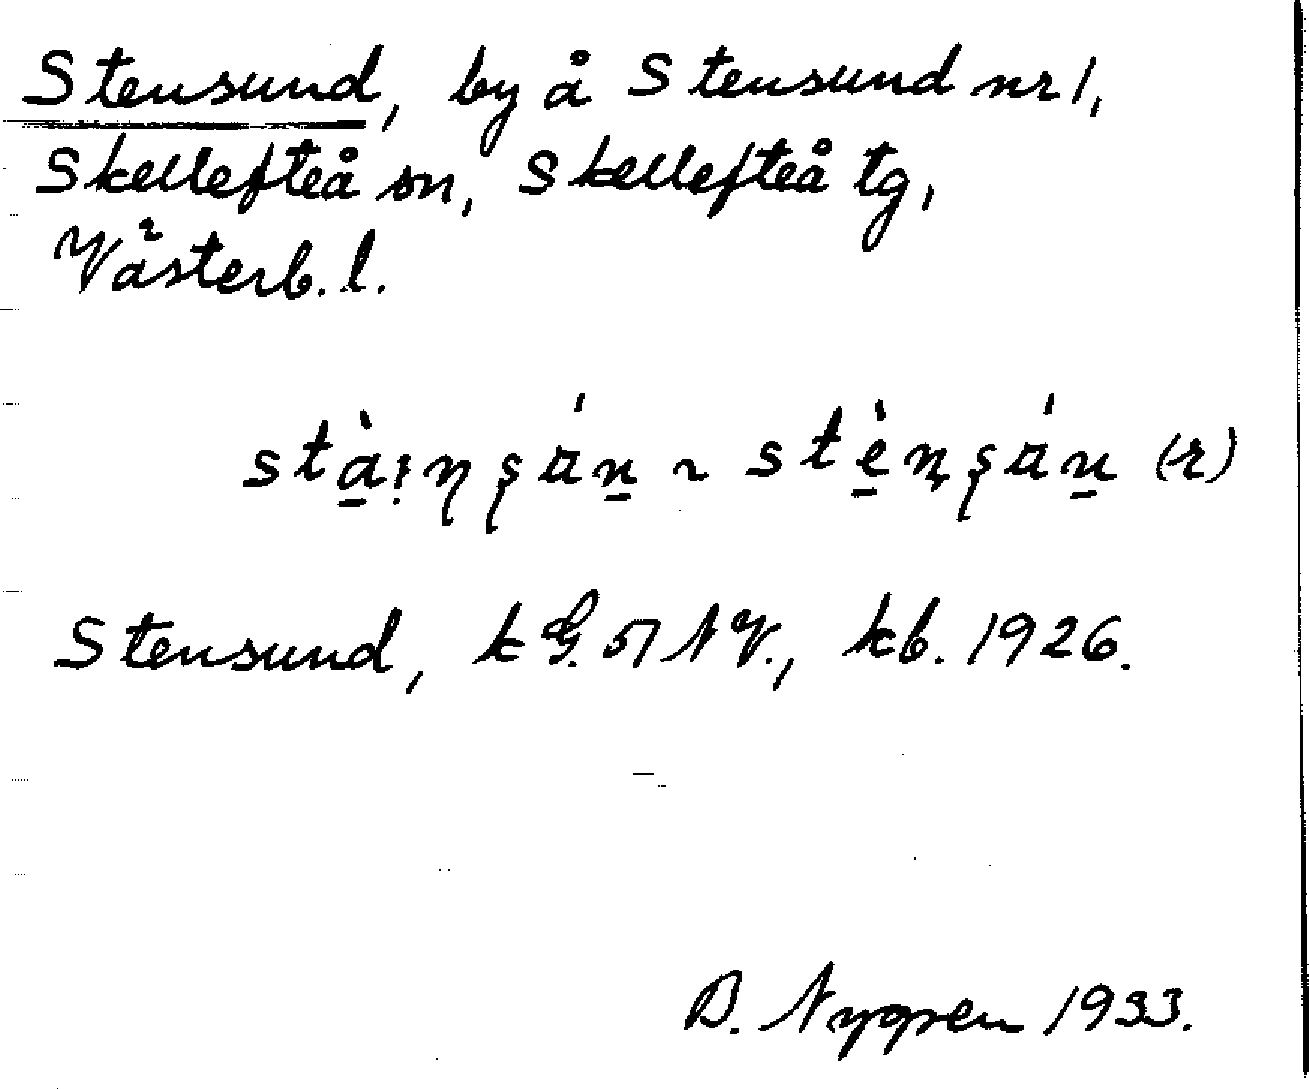 Stensund, by å Stensund nr 1,
Skellefteå sn, Skellefteå tg,
Västerb. l.
(r)
Stensund, k G. 51 NV., kb. 1926.
D. Nygren 1933.